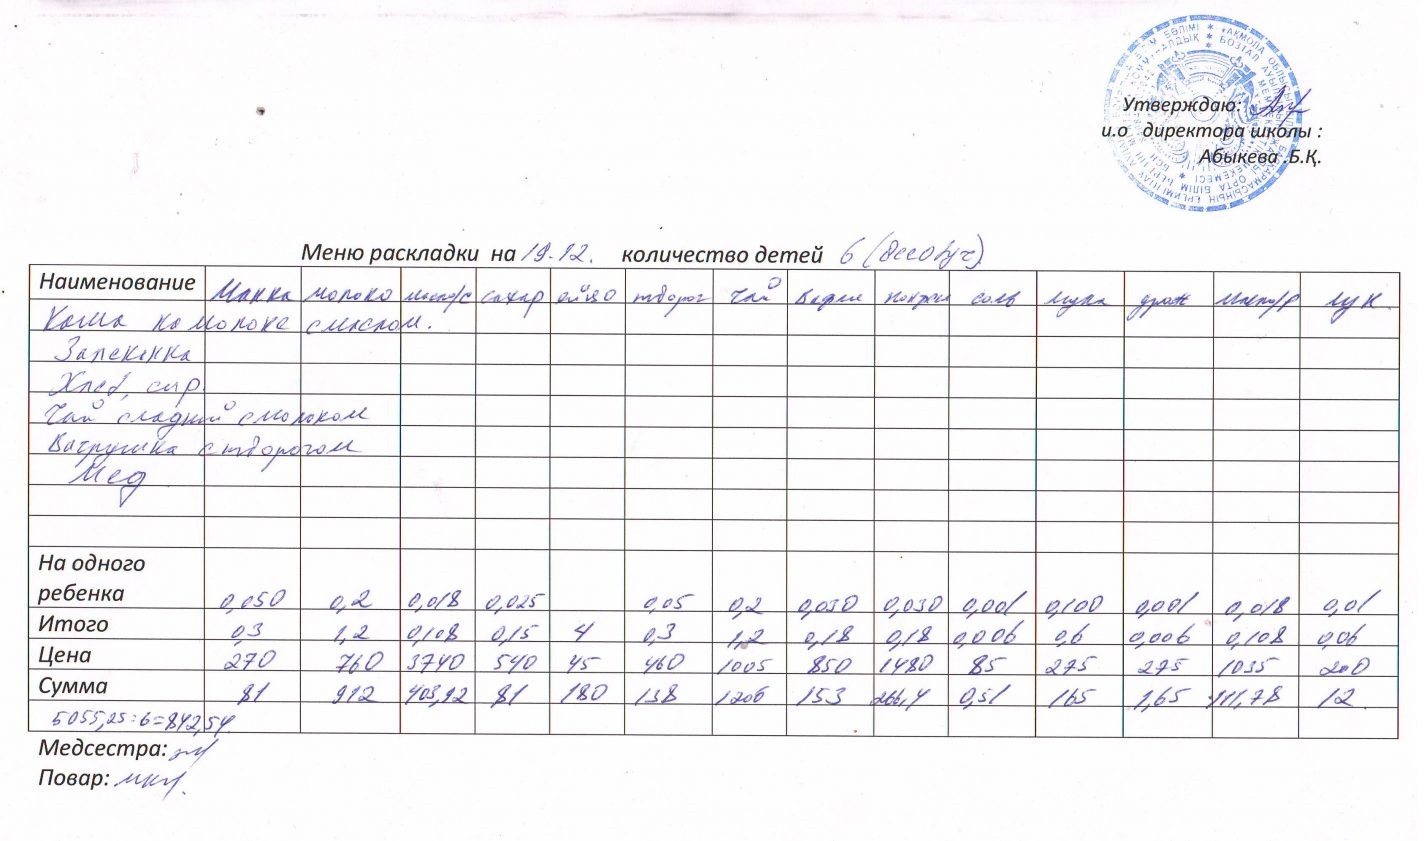 Утверждаю:
и.о директора школы :
Абыкева .Б.Қ.
Меню раскладки на 19.12. количество детей 6 (
Наименование Манка молоко масло/с сахар яйцо творог чай Вафли соль мука дрож масло/р лук
Каша на молоке с маслом.
Запеканка
Хлеб, сыр.
Чай сладкий с молоком
Ватрушка с творогом
Мед
На одного
ребенка 0,050 0,2 0,018 0,025 0,05 0,2 0,030 0,030 0,001 0,100 0,001 0,018 0,01
Итого 0,3 1,2 0,108 0,15 4 0,3 1,2 0,18 0,18 0,006 0,6 0,006 0,108 0,06
Цена 270 760 3740 540 45 460 1005 850 1480 85 275 275 1035 200
Сумма 81 912 403,92 81 180 138 1206 153 266,4 0,51 165 1,65 111,78 12
5055,25:6=842,54
Медсестра:
Повар: